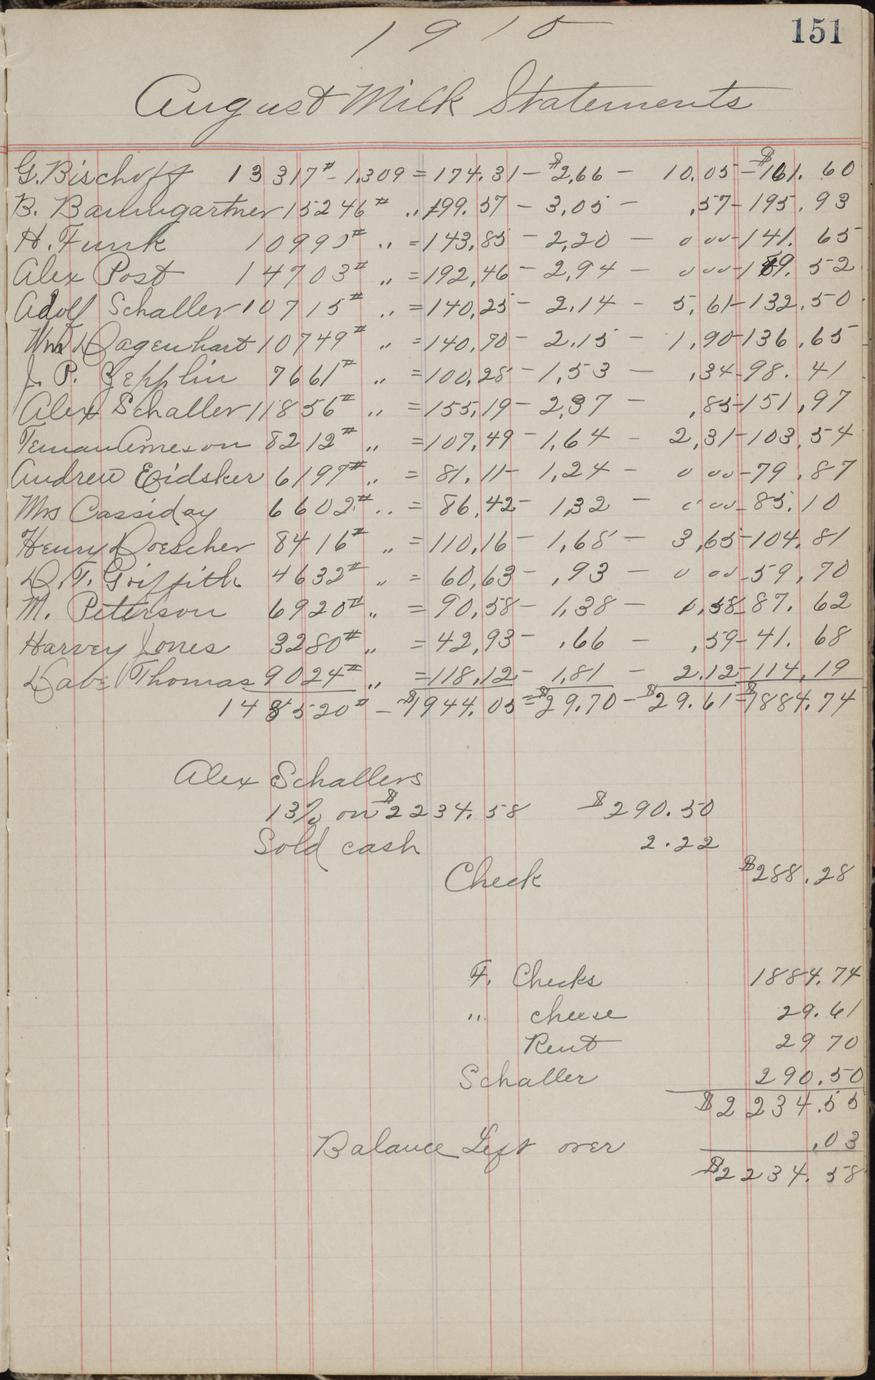 151
1910
August Milk Statements
G. Bischoff 13317# - 1.309 = 174.31 - $2.66 - 10.05 - $161.60
B. Baumgartner 15246# „ 199.57 - 3.05 - .57 - 195.93
H. Funk 10990# „ = 143.85 - 2.20 - 0 00 - 141.65
Alex Post 14703# „ = 192.46 - 2.94 - 0 00 - 189.52
Adolf Schaller 10715# „ = 140.25 - 2.14 - 5.61 - 132.50
Wm Dagenhart 10749# „ = 140.70 - 2.15 - 1.90 - 136.65
J. P. Zepplin 7661# „ = 100.28 - 1.53 - .34 - 98.41
Alex Schaller 11856# „ = 155.19 - 2.37 - .85 - 151.97
Teman Arneson 8212# „ = 107.49 - 1.64 - 2.31 - 103.54
Andrew Eidsker 6197# „ = 81.11 - 1.24 - 0 00 - 79.87
Mrs Cassiday 6602# „ = 86.42 - 1.32 - 0 00 - 85.10
Henry Doescher 8416# „ = 110.16 - 1.68 - 3.65 - 104.81
D. T. Griffith 4632# „ = 60.63 - .93 - 0 00 - 59.70
M. Petterson 6920# „ = 90.58 - 1.38 - 1.58 87.62
Harvey Jones 3280# „ = 42.93 - .66 - .59 - 41.68
Dave Thomas 9024# „ = 118.12 - 1.81 - 2.12 - 114.19
148520# - $1944.05 = $29.70 - $29.61 = $1884.74
Alex Schallers
13% on $2234.58 $290.50
Sold cash 2.22
Check $288.28
F. Checks 1884.74
„ cheese 29.61
Rent 29 70
Schaller 290.50
$2234.55
Balance Left over .03
$2234.58